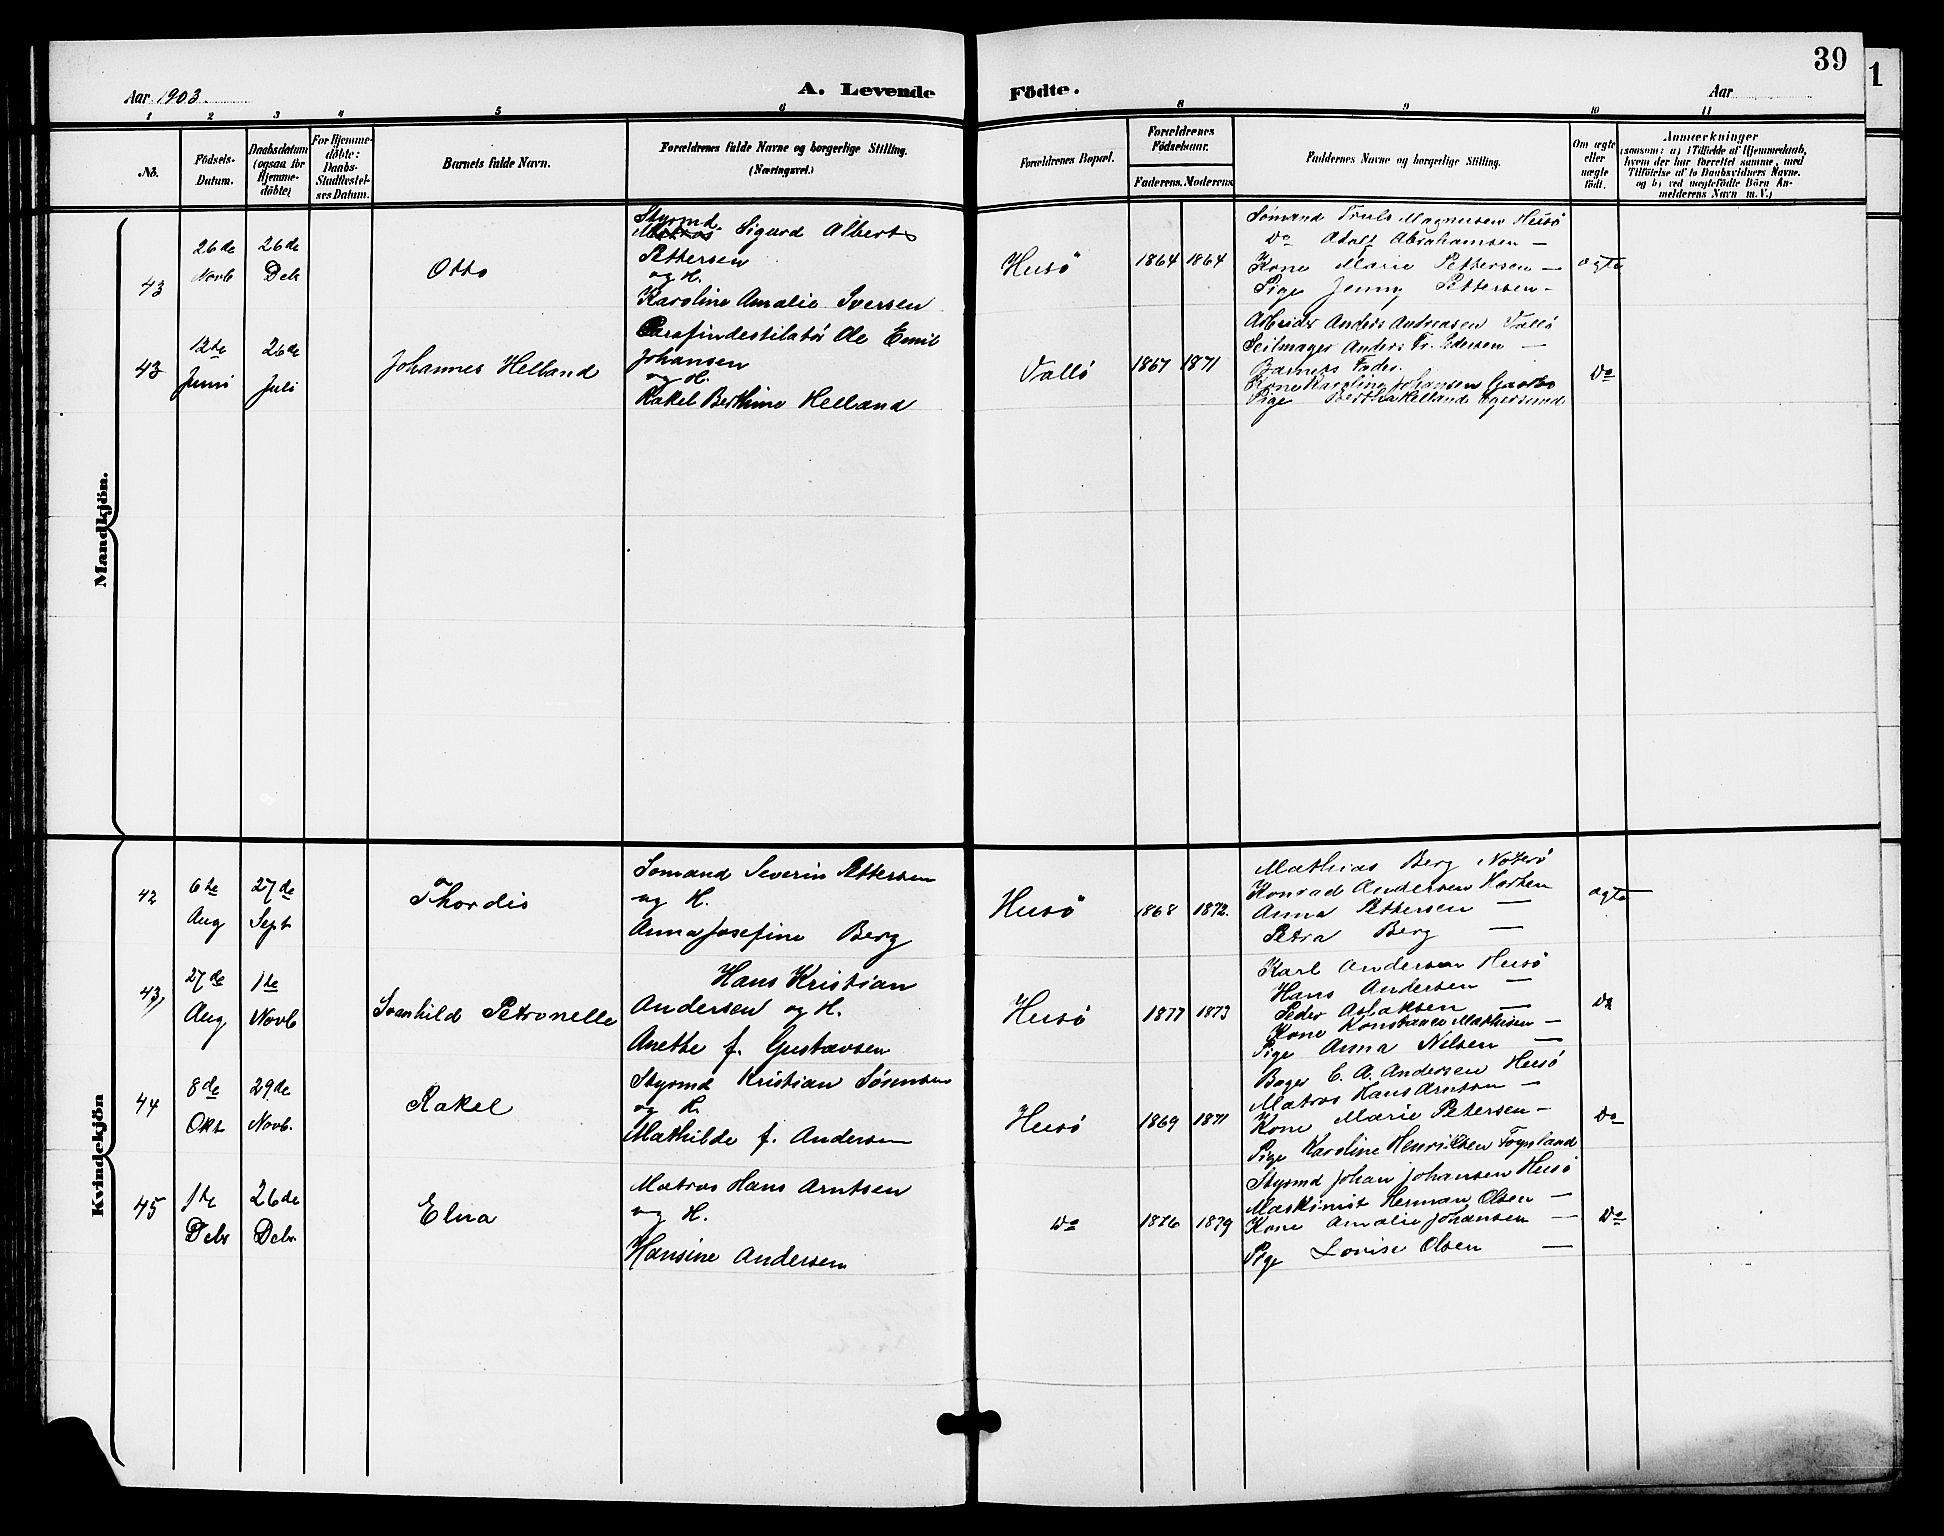 39
1
Aar 1903.
A. Levende
Födte.
Aar
1 2 3 4 5 6 8 9 10 11
No.
Födsels-
Datum.
Daabsdatum
(ogsaa for
Hjemme-
döbte)
For Hjemme-
döbte:
Daabs-
Stadfæstel-
ses Datum.
Barnets fulde Navn.
Forældrenes fulde Navne og borgerlige Stilling.
(Næringsvei.)
Forældrenes Bopæl.
Forældrenes
Födselsaar.
Faderens. Moderens.
Faddernes Navne og borgerlige Stilling.
Om ægte
eller
uægte
födt.
Anmærkninger
(saasom: a) i Tilfælde af Hjemmedaab,
hvem der har forrettet samme, med
Tilföielse af to Daabsvidners Navne.
og b) ved uægtefödte Börn An-
melderens Navn m. V.)
Mandkjön.
43
26de
Novb
26de
Debr
Otto
Styrmd.
Matros Sigurd Albert
Pettersen
og H.
Karoline Amalie Iversen
Husö
1864 1864
Sömand Truls Magnussen Husö
Do Adolf Abrahamsen —
Kone Marie Pettersen —
Pige Jenny Pettersen —
ægte
43
12te
Juni
26de
Juli
Johannes Helland
Parafindestilatör Ole Emil
Johansen
og H.
Rakel Berthine Helland
Vallö
1867 1871
Arbeider Anders Andreasen Vallö
Seilmager Anders Fr. Edersen —
Barnets Fader.
Kone Karoline Johansen
Pige Bertha Helland Egersund
Do
Kvindekjön
42
6te
Aug
27de
Sept
Thordis
Somand Severin Pettersen
og H.
Anna Josefine Berg
Husö
1868 1872.
Mathias Berg Noterö
Konrad Andersen Horten
Anna Pettersen —
Petra Berg —
ægte
43,
27de
Aug
1te
Novb
Svanhild Petronelle
Hans Kristian
Andersen og H.
Anethe f. Gustavsen
Husö
1877 1873
Karl Andersen Husö
Hans Andersen —
Peder Aslaksen —
Kone Konstance Mathisen —
Pige Anna Nilsen —
Do
44
8de
Okt
29de
Novb.
Rakel
Styrmd Kristian Sörensen
og H.
Mathilde f. Andersen
Husö
1869 1871
Bager C. A. Andersen Husö
Matros Hans Arntsen —
Kone Marie Petersen —
Pige Karoline Henriksen Föynland
Do
45
1te
Debr
26de
Debr
Elna
Matros Hans Arntsen
og H.
Hansine Andersen
Do
1876 1879
Styrmd Johan Johansen Husö
Maskinist Herman Olsen —
Kone Amalie Johansen —
Pige Lovise Olsen —
Do